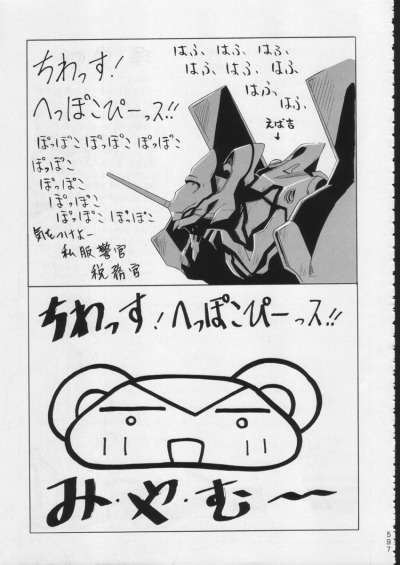 ちわっす!
へっぽこぴーっス!!
ぽっぽこ ぽっぽこ ぽっぽこ
ぽっぽこ
ぽっぽこ
ぽっぽこ
ぽっぽこ ぽっぽこ
気をつけよー
私服警官
税務官
はふ、はふ、はふ、
はふ、はふ、はふ
はふ、
はふ
えば吉
↓
ちわっす!へっぽこぴーっス!!
み・や・む〜
597